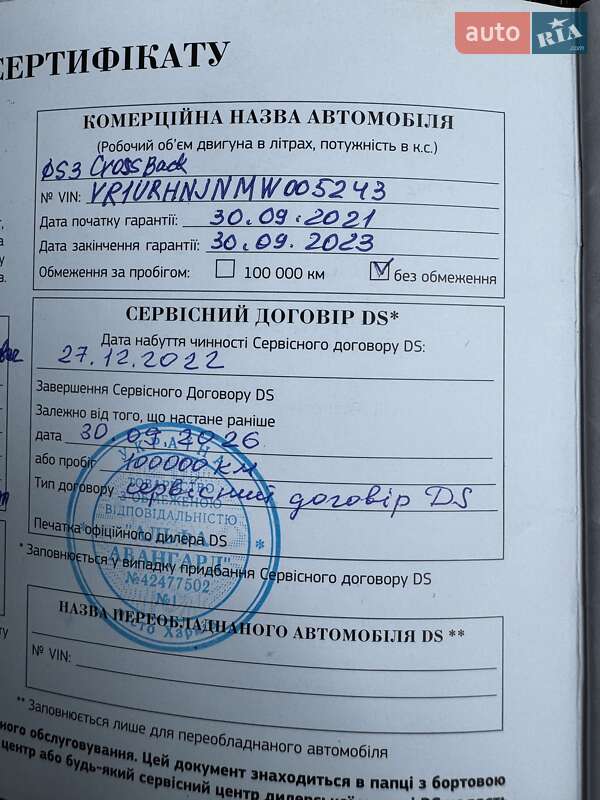 auto RIA .com
СЕРТИФІКАТУ
КОМЕРЦІЙНА НАЗВА АВТОМОБІЛЯ
(Робочий об'єм двигуна в літрах, потужність в к.с.)
DS3 CrossBack
№ VIN: VR1URHNJNMW005243
Дата початку гарантії: 30.09.2021
Дата закінчення гарантії: 30.09.2023
Обмеження за пробігом: 100 000 км без обмеження
СЕРВІСНИЙ ДОГОВІР DS*
Дата набуття чинності Сервісного договору DS:
27.12.2022
Завершення Сервісного Договору DS
Залежно від того, що настане раніше
дата 30.09.2026
або пробіг 100000 км
Тип договору сервісний договір DS
Печатка офіційного дилера DS
УКРАЇНА
ТОВАРИСТВО
З ОБМЕЖЕНОЮ
ВІДПОВІДАЛЬНІСТЮ
АВАНГАРД"
№42477502
№1
* Заповнюється у випадку придбання Сервісного договору DS
НАЗВА ПЕРЕОБЛАДНАНОГО АВТОМОБІЛЯ DS **
№ VIN:
** Заповнюється лише для переобладнаного автомобіля
ного обслуговування. Цей документ знаходиться в папці з бортовою
центр або будь-який сервісний центр